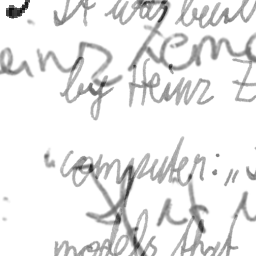 It was buil
einz Zem
by Heinz Z
"computer: "
It is
models that